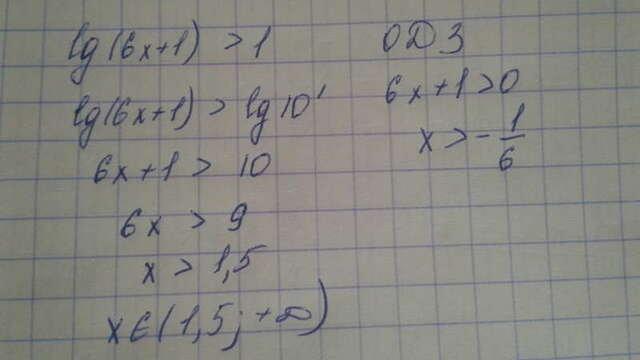 lg(6x+1) > 1
lg(6x+1) > lg 10¹
6x+1 > 10
6x > 9
x > 1,5
x ∈ (1,5; +∞)
ОДЗ
6x+1>0
x > -1/6